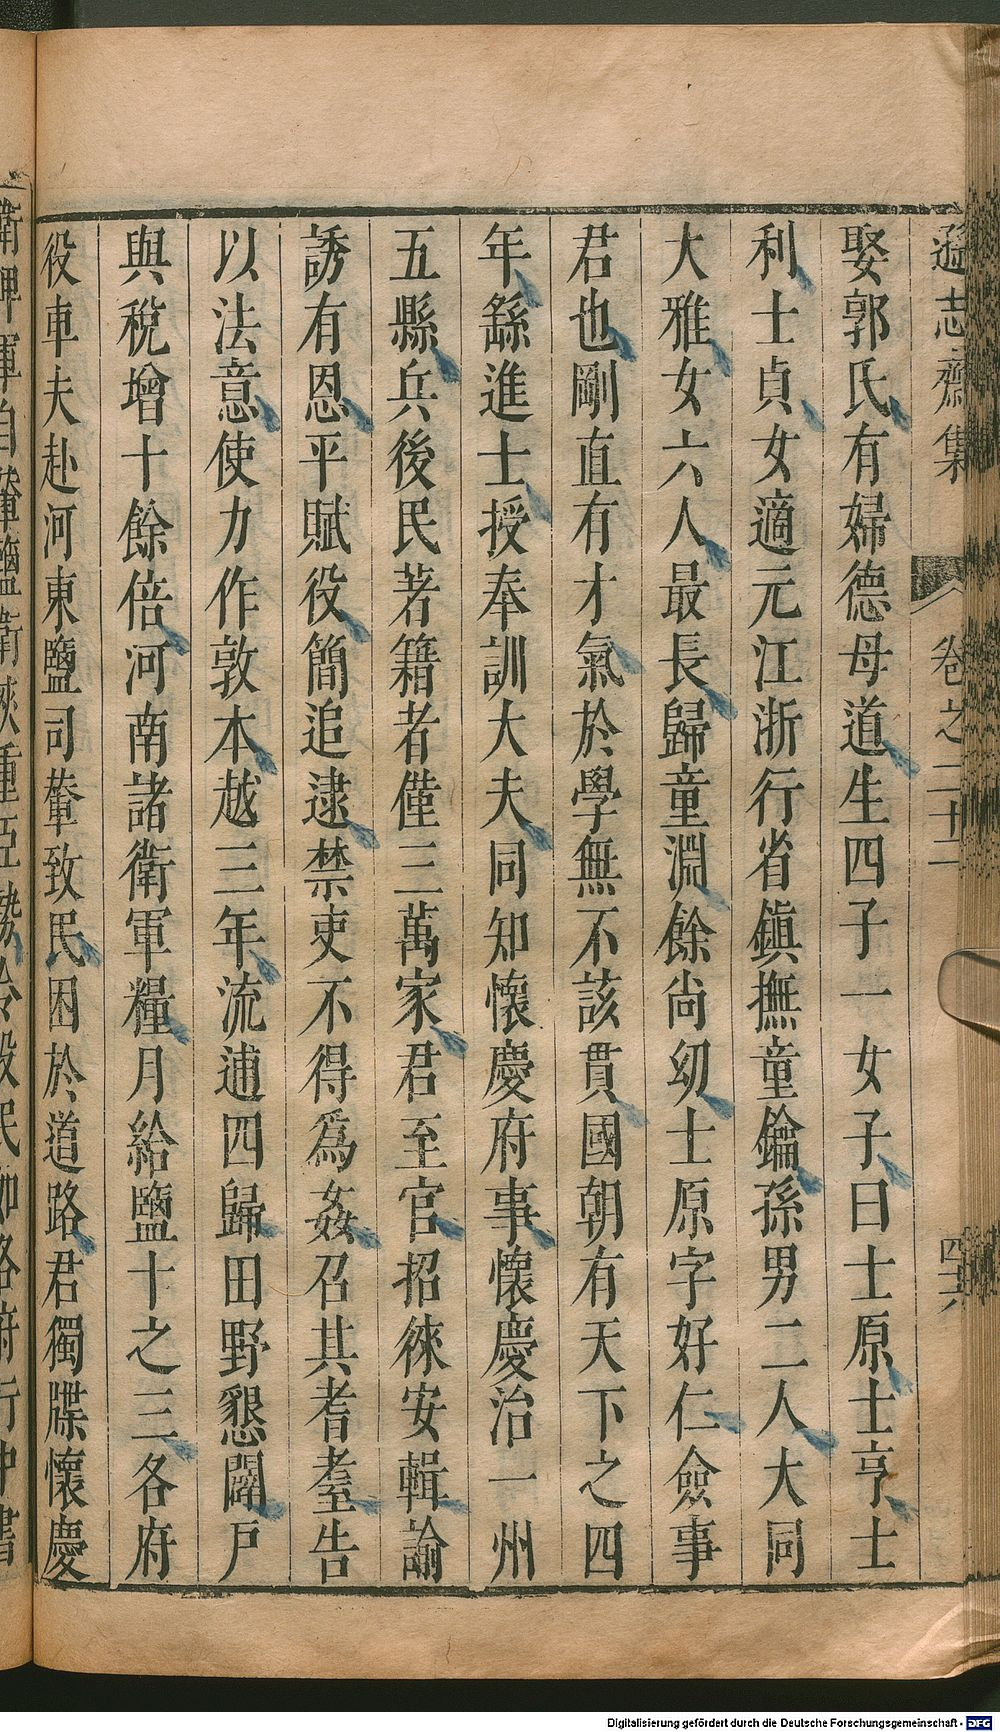 遜志齋集 卷之二十二 四十六
娶郭氏有婦德母道生四子一女子曰士原士亨士
利士貞女適元江浙行省鎮撫童鑰孫男二人大同
大雅女六人最長歸童淵餘尚幼士原字好仁僉事
君也剛直有才氣於學無不該貫國朝有天下之四
年繇進士授奉訓大夫同知懷慶府事懷慶治一州
五縣兵後民著籍者僅三萬家君至官招徠安輯諭
誘有恩平賦役簡追逮禁吏不得爲姦召其耆耋告
以法意使力作敦本越三年流逋四歸田野懇闢戶
與稅增十餘倍河南諸衛軍糧月給鹽十之三各府
役車夫赴河東鹽司輦致民困於道路君獨牒懷慶
Digitalisierung gefördert durch die Deutsche Forschungsgemeinschaft - DFG